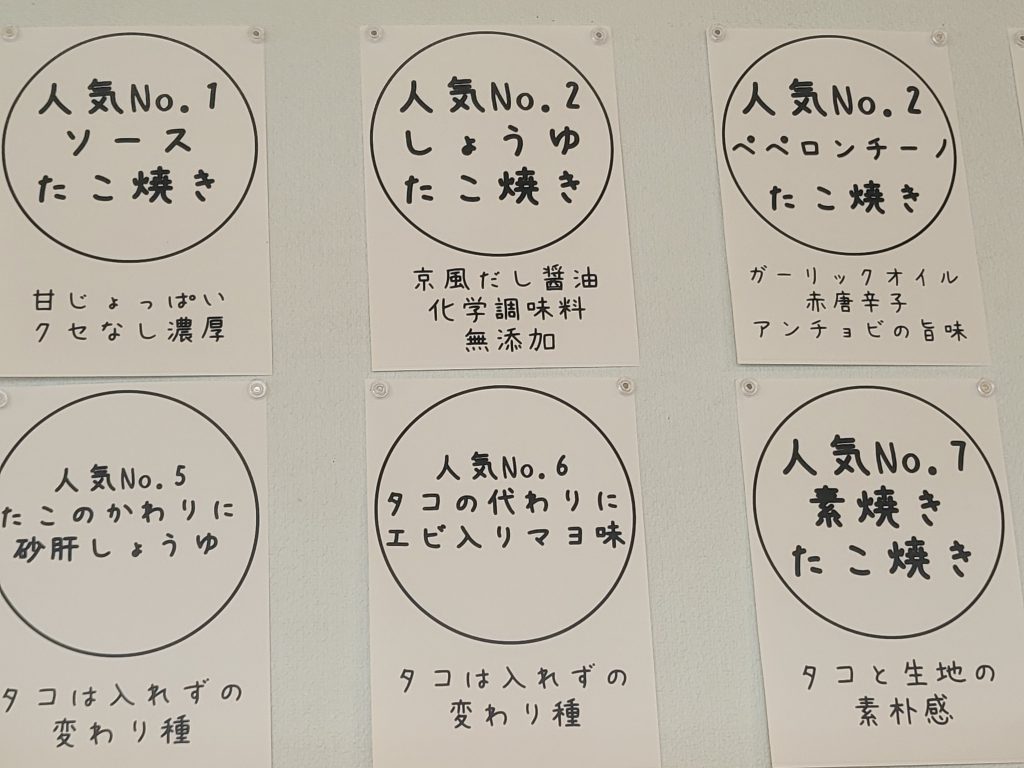 人気No.1
ソース
たこ焼き
甘じょっぱい
クセなし濃厚
人気No.2
しょうゆ
たこ焼き
京風だし醤油
化学調味料
無添加
人気No.2
ペペロンチーノ
たこ焼き
ガーリックオイル
赤唐辛子
アンチョビの旨味
人気No.5
たこのかわりに
砂肝しょうゆ
タコは入れずの
変わり種
人気No.6
タコの代わりに
エビ入りマヨ味
タコは入れずの
変わり種
人気No.7
素焼き
たこ焼き
タコと生地の
素朴感